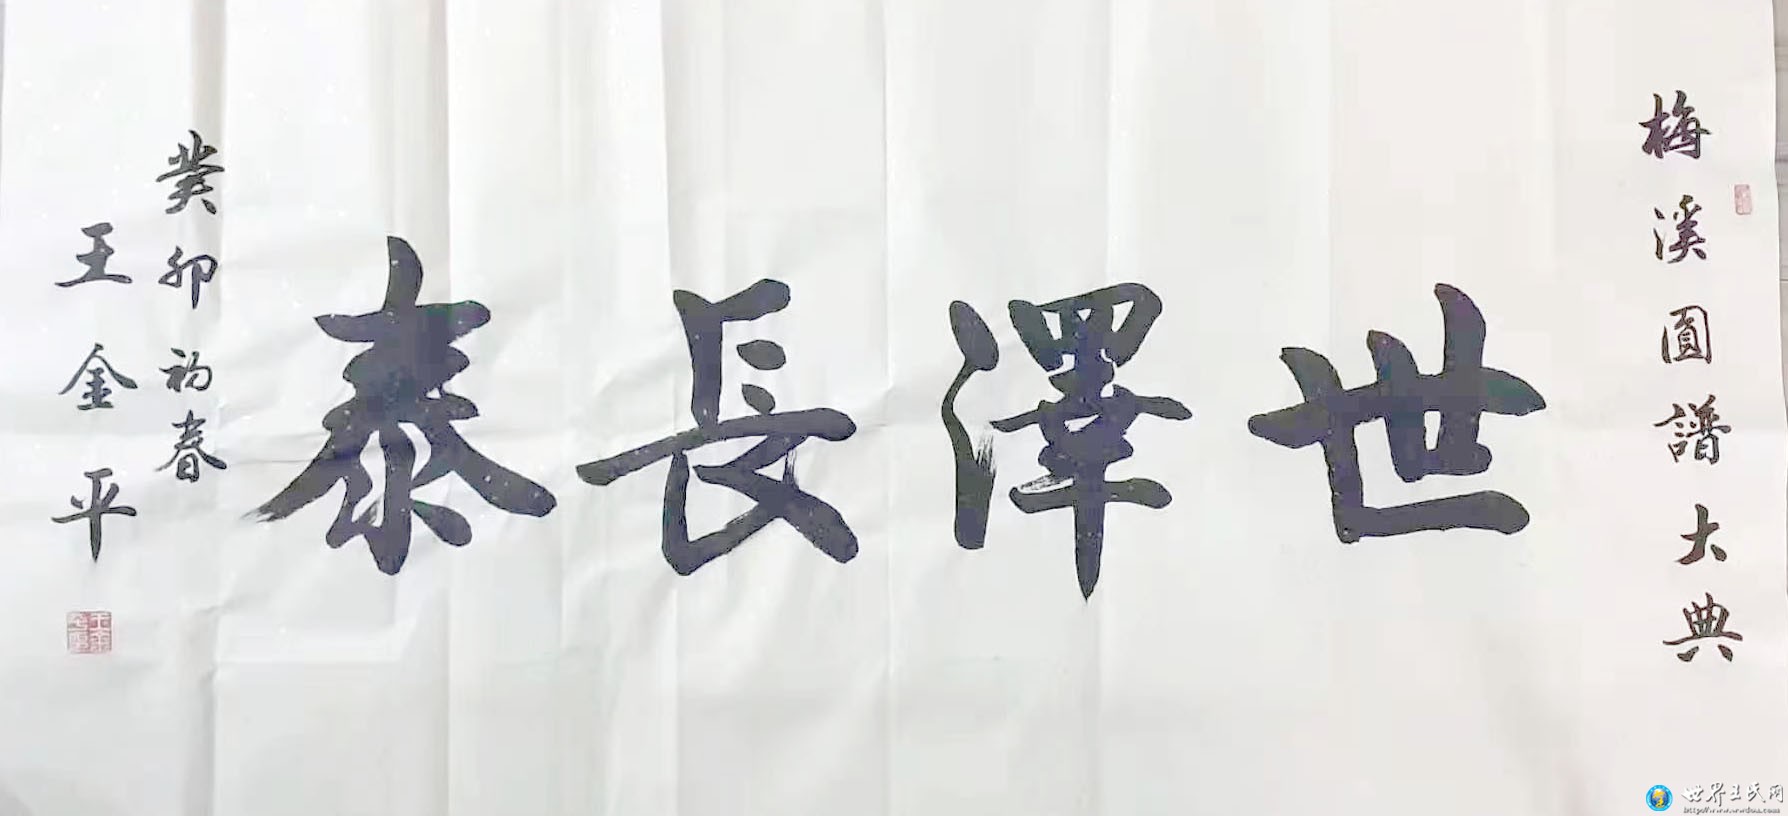 梅溪圓譜大典
世澤長泰
癸卯初春
王金平
世界王氏网
http://www.wwdoa.com